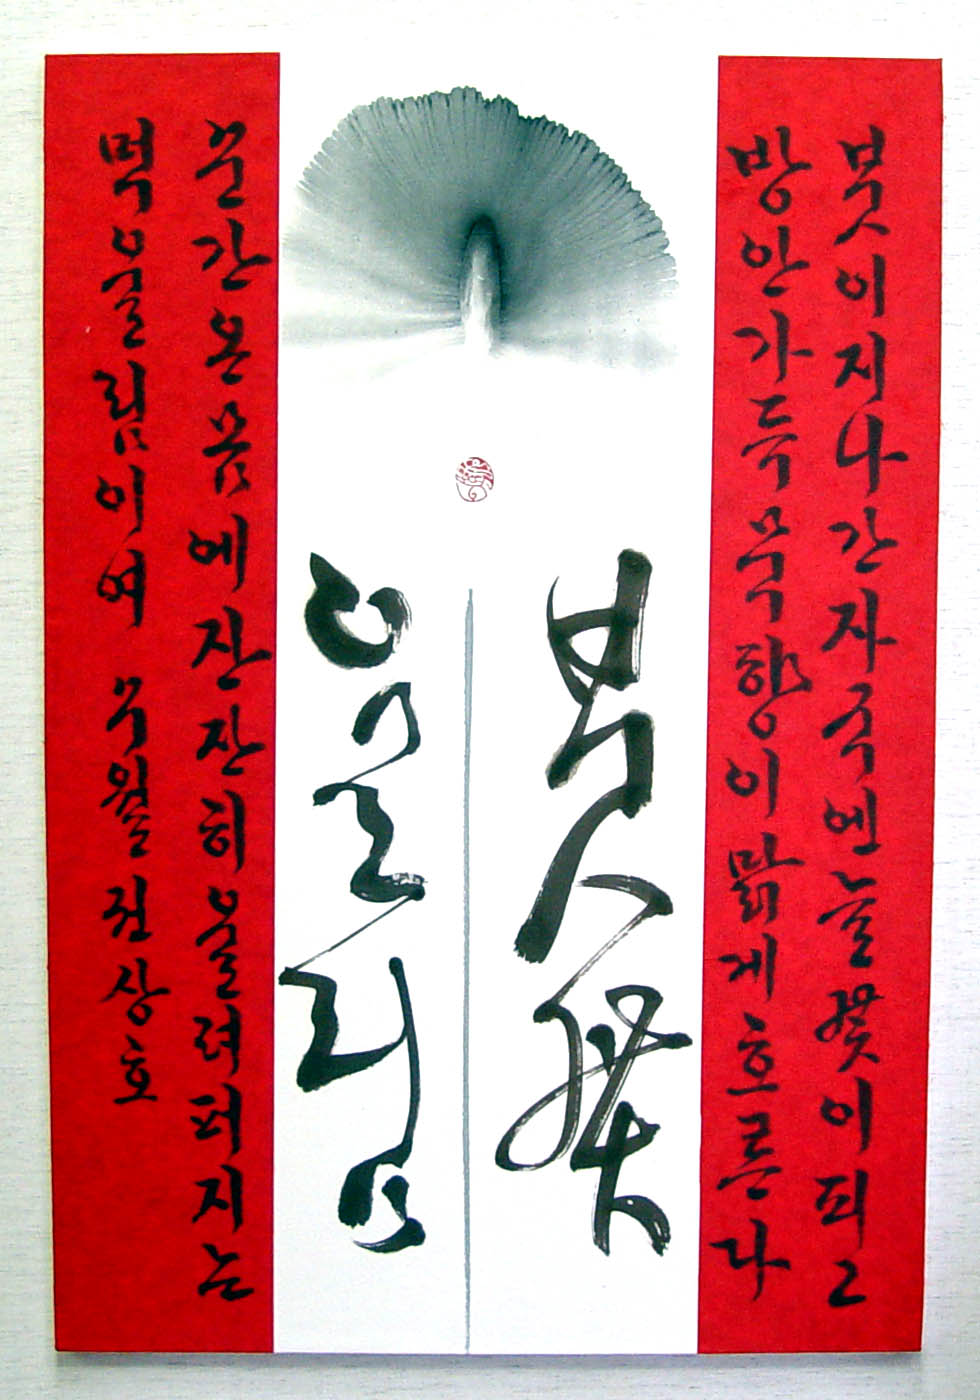 붓이지나간자국엔늘꽃이피그
방안가득묵향이맑게흐른다
붓꽃
울림
순간온몸에잔잔히울려퍼지는
먹울림이여 수월권상호